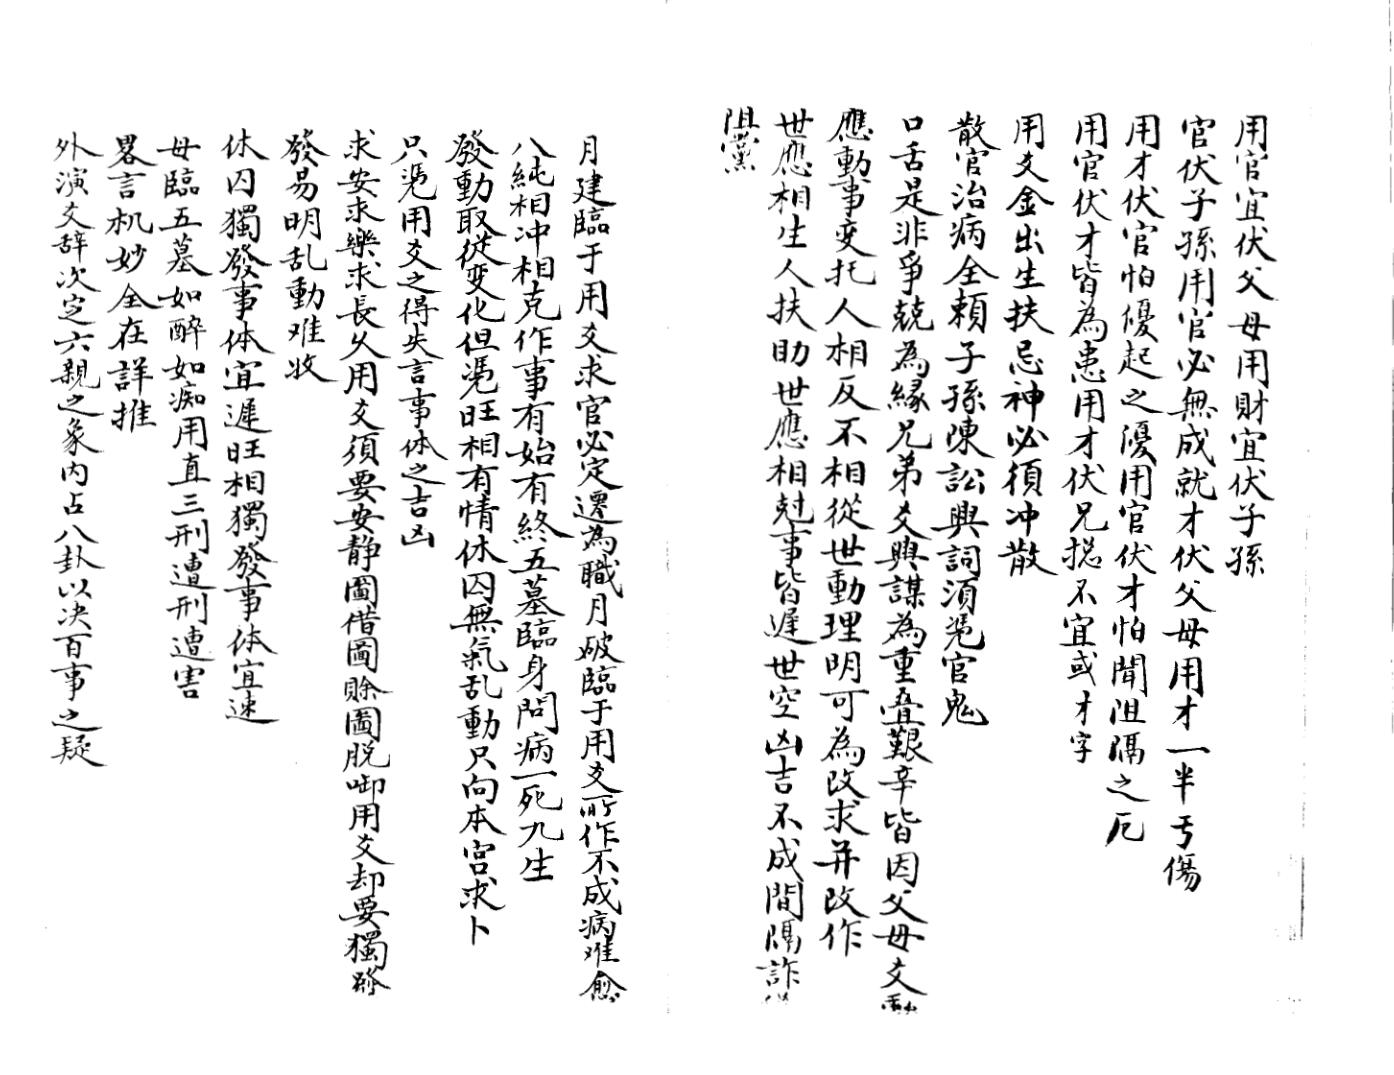 用官宜伏父母用財宜伏子孫
官伏子孫用官必無成就才伏父母用才一半亏傷
用才伏官怕優起之憂用官伏才怕聞阻隔之厄
用官伏才皆為患用才伏兄捴不宜或才字
用爻金出生扶忌神必須冲散
散官治病全頼子孫陳訟興詞須凴官鬼
口舌是非爭兢為緣兄弟爻與謀為重叠艱辛皆因父母爻動
應動事变托人相反不相從世動理明可為改求并改作
世應相生人扶助世應相尅事皆遲世空凶吉不成間隔詐
阻黨
月建臨于用爻求官必定遷為職月破臨于用爻所作不成病难愈
八純相冲相克作事有始有終五墓臨身問病一死九生
發動取從变化但凴旺相有情休囚無氣乱動只向本宮求卜
只凴用爻之得失言事体之吉凶
求安求樂求長久用爻須要安静圖借圖賒圖脱卸用爻却要獨發
發易明乱動难收
休囚獨發事体宜遲旺相獨發事体宜速
母臨五墓如醉如痴用直三刑遭刑遭害
畧言机妙全在詳推
外演爻辞次定六親之象内占八卦以决百事之疑